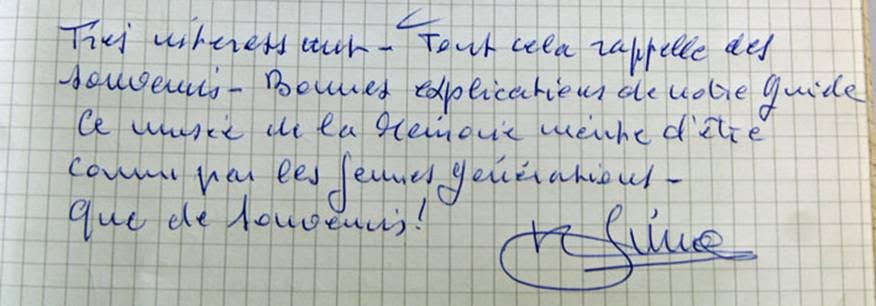 Très intéressant - Tout cela rappelle des
souvenirs - Bonnes explications de notre guide
Ce musée de la Mémoire mérite d'être
connu par les jeunes générations -
Que de souvenirs!